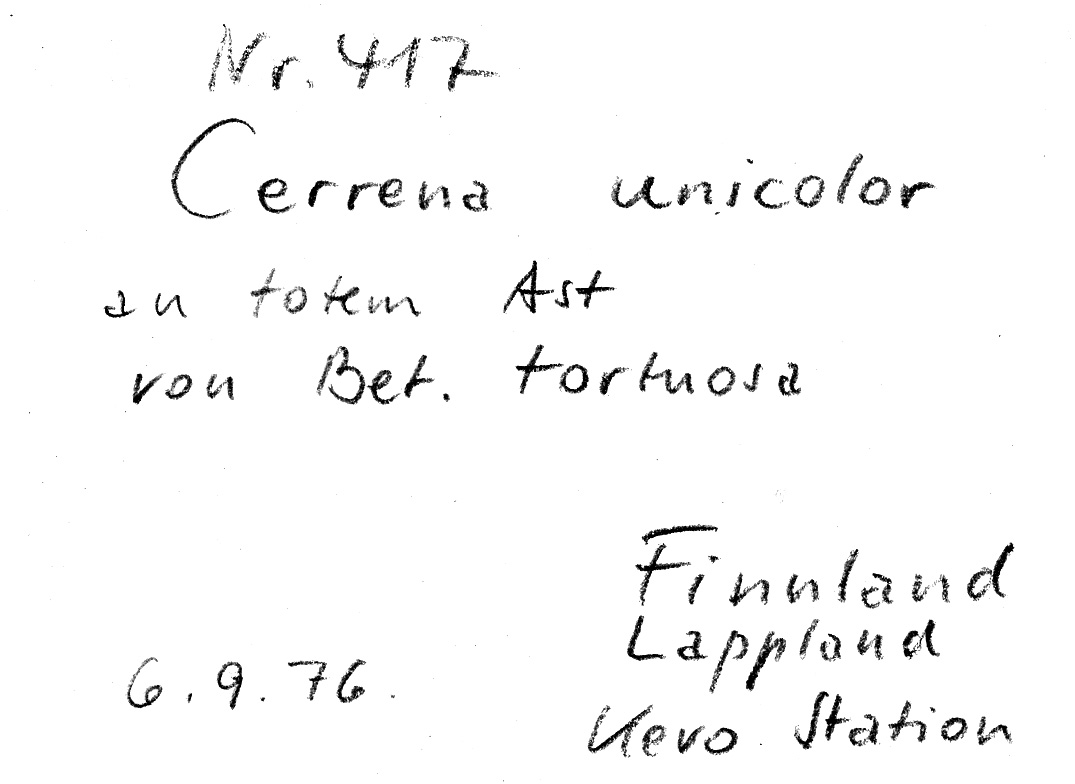 Nr. 417
Cerrena unicolor
an totem Ast
von Bet. tortuosa
Finnland
Lappland
6.9.76.
Kevo Station